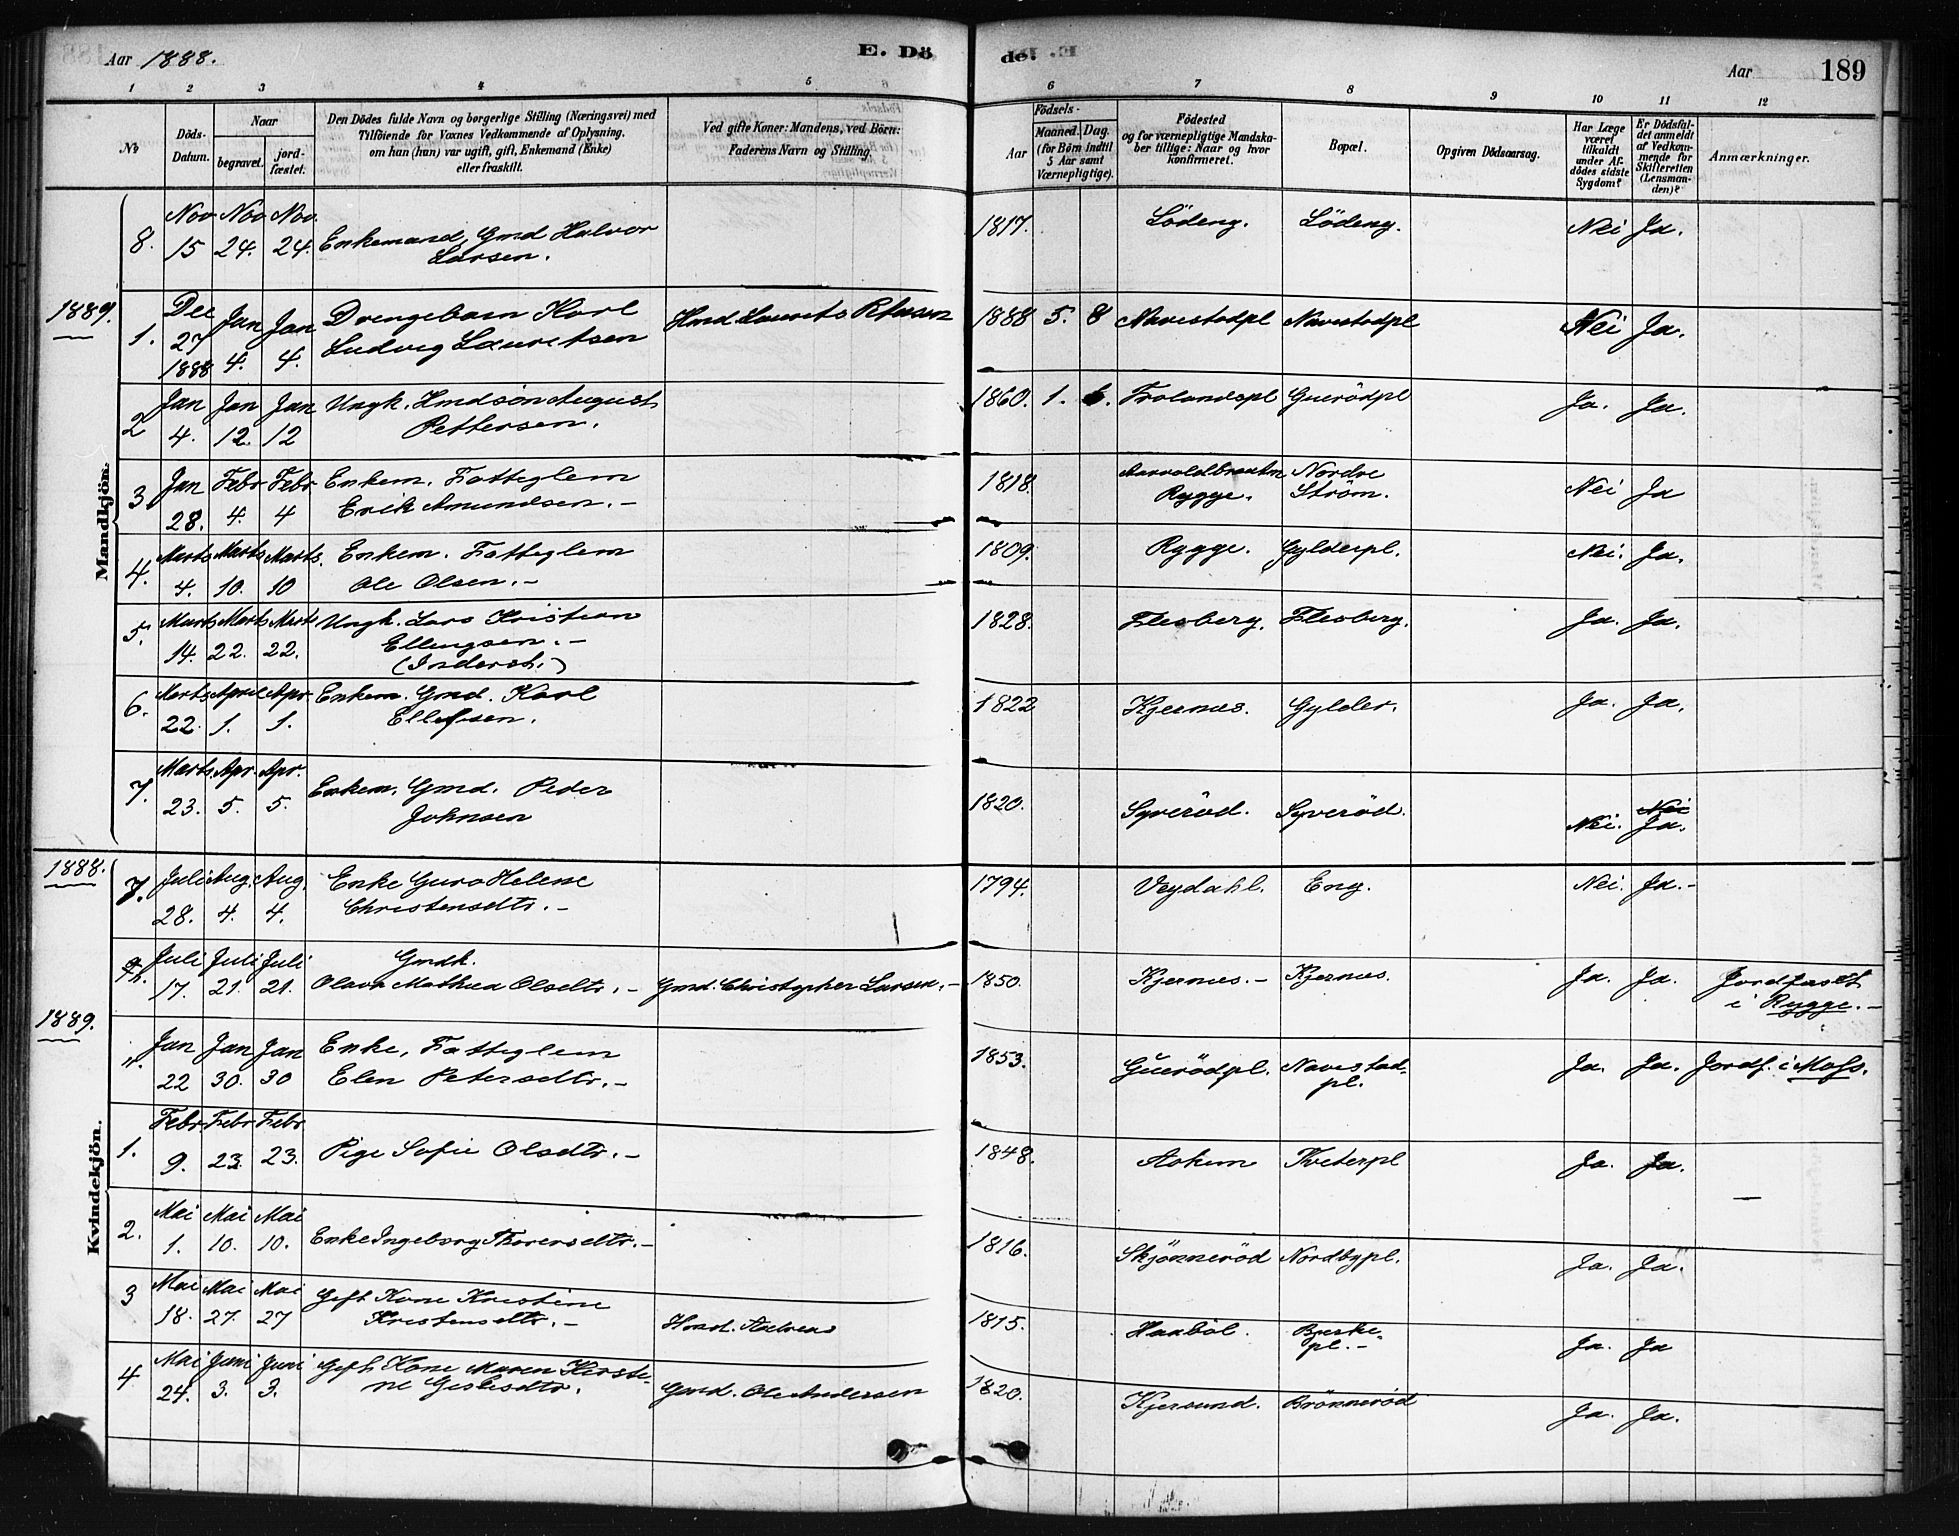 Aar 1888. E. Dö
de. Aar 189
1 2 3 4 5 6 7 8 9 10 11 12
No
Döds-Datum.
Naar
begravet. jordfæstet.
Den Dödes fulde Navn og borgerlige Stilling (Næringsvei) med
Tilföiende for Voxnes Vedkommende af Oplysning,
om han (hun) var ugift, gift, Enkemand (Enke)
eller fraskilt.
Ved gifte Koner: Mandens, ved Börn:
Faderens Navn og Stilling.
Födsels-
Aar Maaned. Dag.
(for Börn indtil
5 Aar samt
Værnepligtige).
Födested
og for værnepligtige Mandskaber tillige: Naar og hvor
konfirmeret.
Bopæl.
Opgiven Dödsaarsag.
Har Læge
været
tilkaldt
under Afdödes sidste
Sygdom?
Er Dödsfaldet anmeldt
af Vedkommende for
Skifteretten
(Lensmanden)?
Anmærkninger.
Mandkjön.
8. Nov 15 Nov 24. Nov. 24. Enkemand, Gmd Halvor Larsen. 1817. Lödeng. Lödeng. Nei Ja.
1889.
1. Dec 27 1888 Jan 4. Jan 4. Drengebarn Karl Ludvig Lauritsen Hmd Laurits 1888 5. 8 Navestadpl Navestadpl Nei Ja.
2 Jan 4. Jan 12. Jan 12 Ungk. Hmdsön August Pettersen. 1860. 1. 6. Trolandspl Guerödpl Ja. Ja.
3 Jan 28. Febr 4. Febr 4 Enkem. Fatteglem Erik Amundsen.- 1818. Rygge. Nordre Ström. Nei Ja
4. Marts 4. Marts 10. Marts. 10 Enkem. Fatteglem Ole Olsen.- 1809. Rygge. Gylderpl. Nei. Ja.
5. Marts 14. Marts 22. Marts 22. Ungk. Lars Kristian Ellingsen.- (Inderst.) 1828. Flesberg. Flesberg. Ja. Ja.
6. Marts 22. April 1. Apr 1. Enkem. Gmd. Karl Ellefsen. 1822 Kjernes. Gylder. Ja. Ja.
7. Marts 23. Apr. 5. Apr. 5. Enkem. Gmd. Peder Johnsen 1820. Syveröd. Syveröd. Nei. Nei Ja.
Kvindekjön.
1888.
7. Juli 28. Aug. 4. Aug. 4. Enke Guro Helene Christensdtr.- 1794. Veydahl. Eng. Nei. Ja.-
Juli 17. Juli 21. Juli 21. Gmdk. Olava Mathea Olsdtr.- Gmd. Christopher Larsen.- 1850. Kjernes.- Kjernes. Ja. Ja. Jordfæstet i Rygge.-
1889.
". Jan 22 Jan 30. Jan 30 Enke, Fatteglem Elen Petersdtr.- 1853. Guerödpl. Navestadpl. Ja. Ja. Jordf. i Moss.
1. Febr 9. Febr 23. Febr 23. Pige Sofie Olsdtr.- 1848. Askem Kveterpl Ja. Ja.
2. Mai 1. Mai 10. Mai 10. Enke Ingeborg Thorersdtr.- 1816. Skjönneröd Nordbypl. Ja. Ja.
3 Mai 18. Mai 27. Mai 27 Gift Kone Kristine Kristensdtr.- Hmd. Andreas 1815. Haaböl. Ja. Ja
4 Mai 24. Juni 3. Juni 3. Gift Kone Maren Kirstine 1820. Gmd. Ole Andersen Kjersund. Brönneröd Ja. Ja.